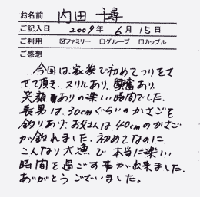 お名前 内田 博
ご記入日 2009年 6月15日
ご利用 ☑ファミリー □グループ □カップル
ご感想
今回は、家族で初めてつりをさ
せて頂き、スリルあり、興奮あり、
笑顔ありの楽しい時間でした。
長男は、50cmぐらいのかさごを
釣りあげ、お父さんは40cmのかさご
が釣れました。初めてなのに
こんなに大漁で 本当に楽しい
時間を過ごす事が出来ました。
ありがとうございました。